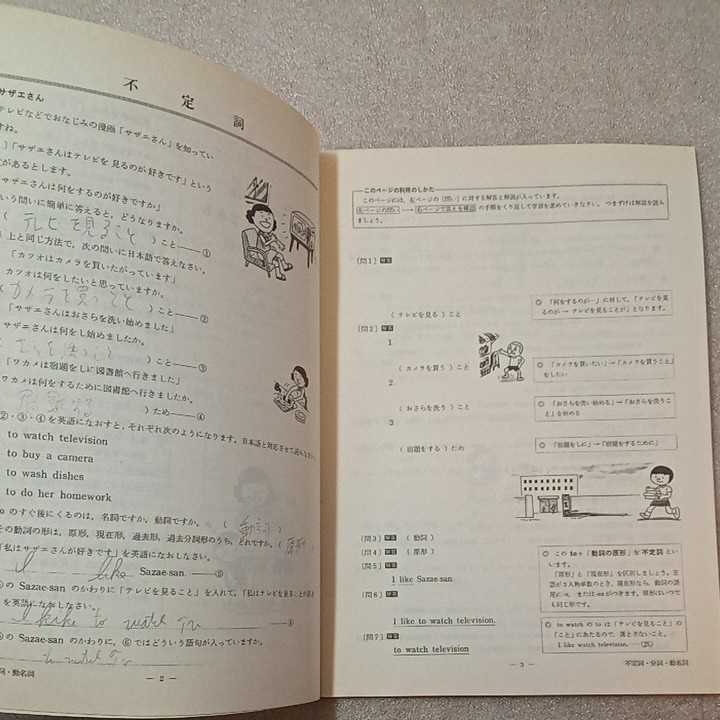 不定詞
サザエさん
テレビなどでおなじみの漫画「サザエさん」を知ってい
すね。
)「サザエさんはテレビを見るのが好きです」という
があるとします。
サザエさんは何をするのが好きですか」
いう問いに簡単に答えると、どうなりますか。
( テレビを見ること ) こと——①
上と同じ方法で、次の問いに日本語で答えなさい。
カツオはカメラを買いたがっています」
カツオは何をしたいと思っていますか。
カメラを買うこと ) こと——②
「サザエさんはおさらを洗い始めました」
サザエさんは何をし始めましたか。
) こと——③
「ワカメは宿題をしに図書館へ行きました」
ワカメは何をするために図書館へ行きましたか。
) ため——④
②・③・④を英語になおすと、それぞれ次のようになります。日本語と対応させて読みなさい。
to watch television
to buy a camera
to wash dishes
to do her homework
のすぐ後にくるのは、名詞ですか、動詞ですか。 ( 動詞 )
その動詞の形は、原形、現在形、過去形、過去分詞形のうち、どれですか。( 原形 )
「私はサザエさんが好きです」を英語になおしなさい。
I like Sazae-san. ——⑤
の Sazae-san のかわりに「テレビを見ること」を入れて、「私はテレビを見ることが好
を英語になおしなさい。
I like to watch TV ——⑥
の Sazae-san のかわりに、⑥ではどういう語句が入っていますか。
to watch TV
詞・動名詞
— 2 —
このページの利用のしかた
このページには、左ページの〔問い〕に対する解答と解説が入っています。
左ページの問い → 右ページで答えを確認 の手順をくり返して学習を進めていきなさい。つまずけば解説を読み
ましょう。
〔問1〕 解答
( テレビを見る ) こと
◎ 「何をするのが…」に対して、「テレビを見
るのが → テレビを見ることが」となります。
〔問2〕 解答
1.
( カメラを買う ) こと
◎ 「カメラを買いたい」→「カメラを買うこと
をしたい
2.
( おさらを洗う ) こと
◎ 「おさらを洗い始める」→「おさらを洗うこ
と」を始める
3.
( 宿題をする ) ため
◎ 「宿題をしに」→「宿題をするために」
〔問3〕 解答 ( 動詞 )
〔問4〕 解答 ( 原形 )
〔問5〕 解答
I like Sazae-san.
◎ この to+「動詞の原形」を不定詞とい
います。
「原形」と「現在形」を区別しましょう。主
語が3人称単数のとき、現在形なら、動詞の語
尾に-s, または-esがつきます。原形はいつで
も同じ形です。
〔問6〕 解答
I like to watch television.
〔問7〕 解答
to watch television
◎ to watch の to は「テレビを見ること」の
「こと」にあたるので、落とさないこと。
I like watch television. ——(誤)
— 3 —
不定詞・分詞・動名詞